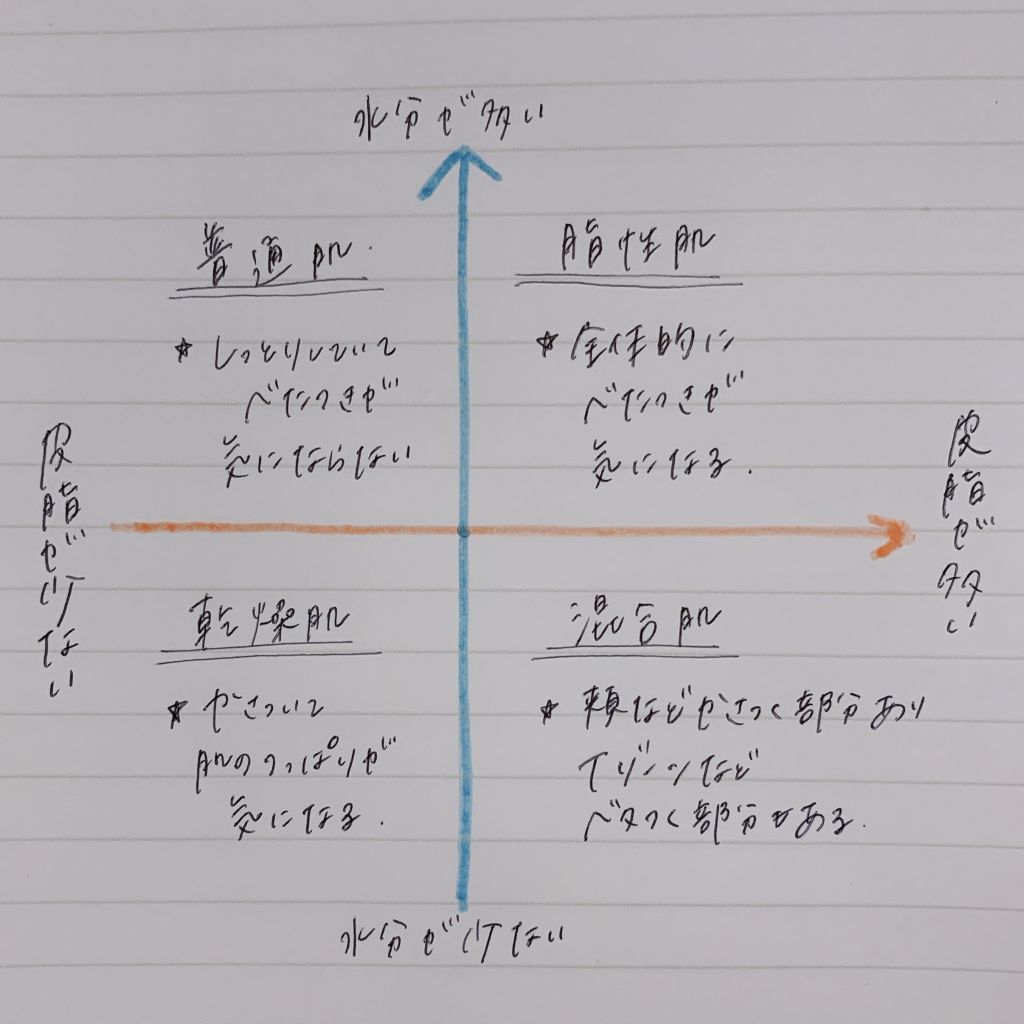 水分が多い
普通肌.
★ しっとりしていて
べたつきが
気にならない
脂性肌
★ 全体的に
べたつきが
気になる.
皮脂が少ない
皮脂が多い
乾燥肌
★ かさついて
肌のつっぱりが
気になる.
混合肌
★ 頬などかさつく部分あり
Tゾーンなど
ベタつく部分もある.
水分が少ない